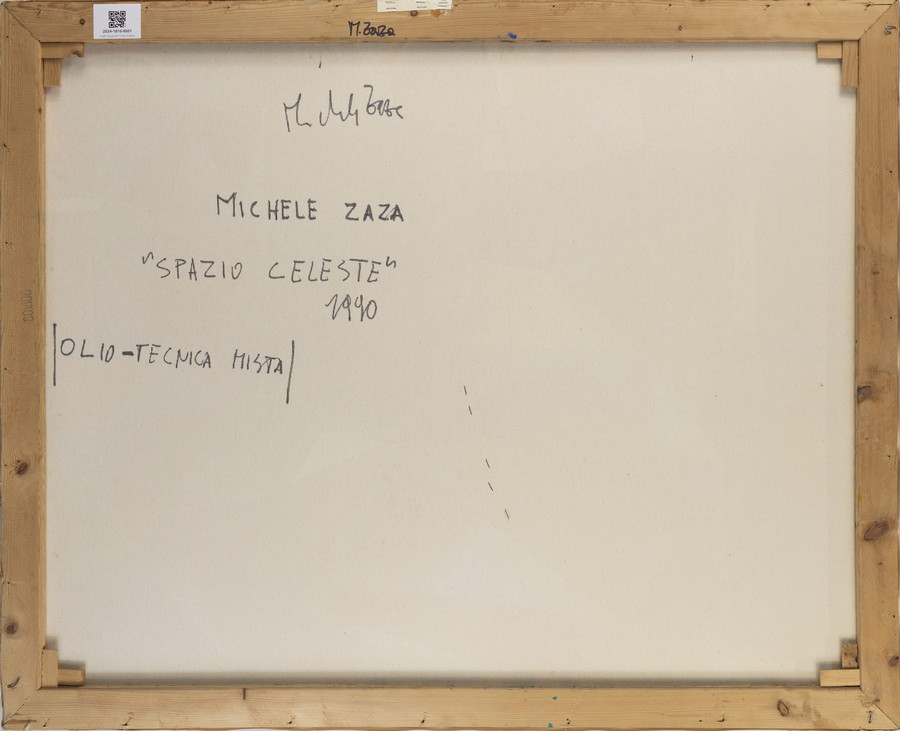 M. Zaza
Michele Zaza
MICHELE ZAZA
"SPAZIO CELESTE"
1990
OLIO-TECNICA MISTA